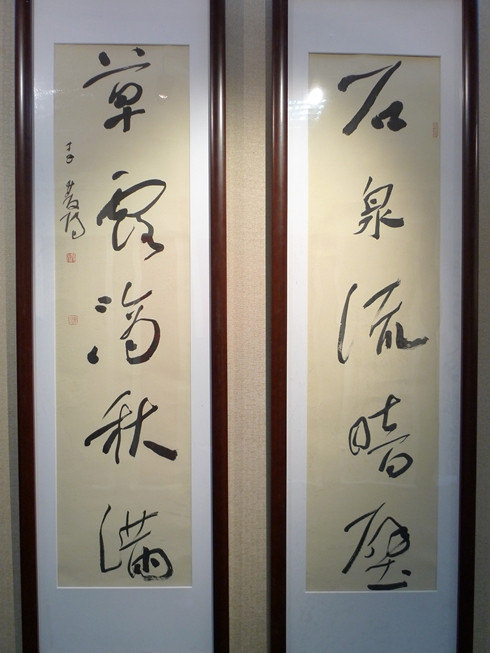 石泉流暗壁
草露滴秋满